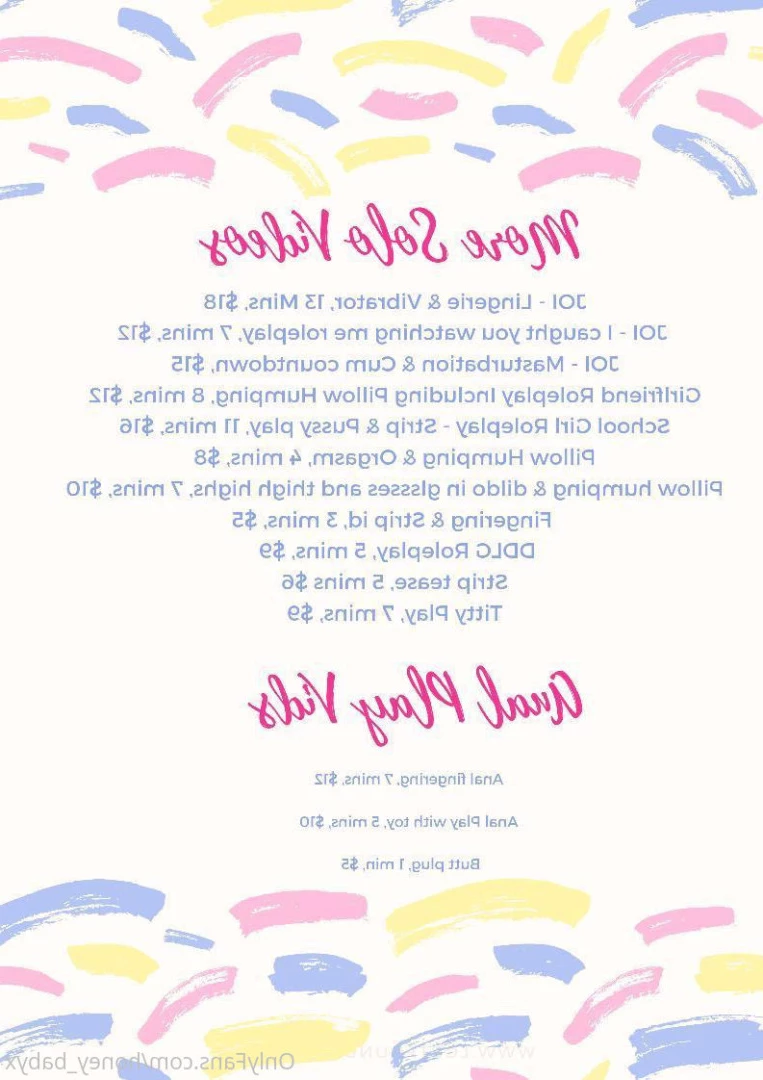 More Solo Videos
JOI - Lingerie & Vibrator, 13 Mins, $18
JOI - I caught you watching me roleplay, 7 mins, $12
JOI - Masturbation & Cum countdown, $15
Girlfriend Roleplay Including Pillow Humping, 8 mins, $12
School Girl Roleplay - Strip & Pussy play, 11 mins, $16
Pillow Humping & Orgasm, 4 mins, $8
Pillow humping & dildo in glssses and thigh highs, 7 mins, $10
Fingering & Strip id, 3 mins, $5
DDLG Roleplay, 5 mins, $9
Strip tease, 5 mins $6
Titty Play, 7 mins, $9
Anal Play Vids
Anal fingering, 7 mins, $12
Anal Play with toy, 5 mins, $10
Butt plug, 1 min, $5
OnlyFans.com/honey_babyx